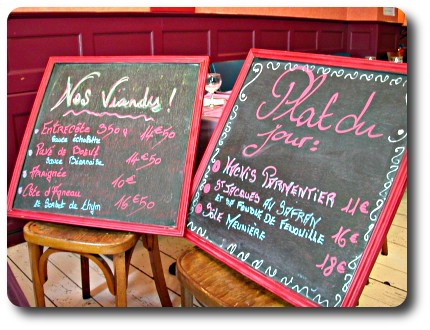 Nos Viandes !
Entrecôte 350g 14€50
sauce échalotte
Pavé de Boeuf 14€50
sauce Béarnaise
Araignée 10€
Côte d'Agneau 16€50
et Sorbet de Thym
Plat du
jour:
Hachis Parmentier 11€
St Jacques au Safran
et sa Fondue de Fenouille 16€
Sole
Meunière 18€